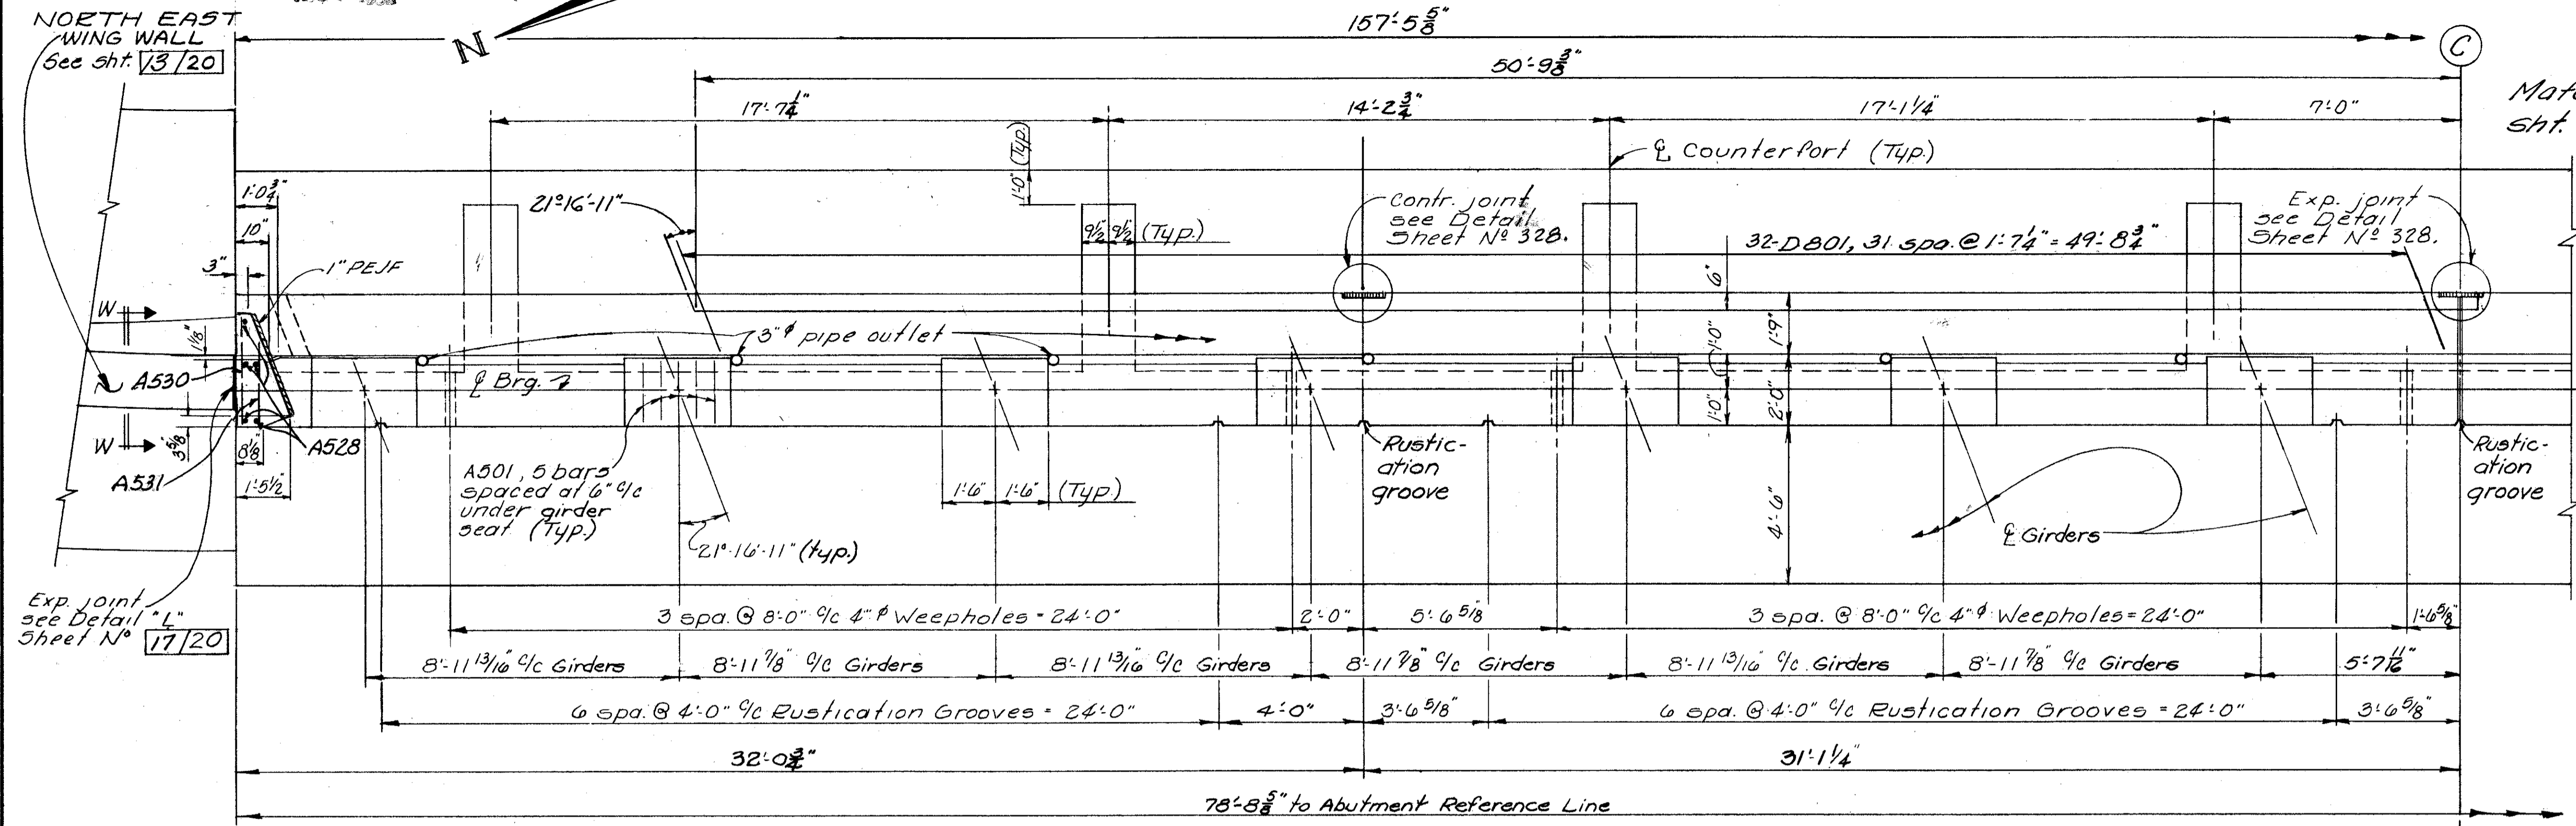 NORTH EAST
WING WALL
See sht. 13/20
N
157'-5 5/8"
C
50'-9 3/8"
17'-7 1/4"
14'-2 3/4"
17'-1 1/4"
7'-0"
Sht.
1'-0" (Typ.)
℄ Counterfort (Typ.)
1'-0 3/4"
10"
3"
1" PEJF
21°-16'-11"
9 1/2 9 1/2 (Typ.)
Contr. joint
see Detail
Sheet Nº 328.
32-D801, 31 spa. @ 1'-7 1/4" = 49'-8 3/4"
Exp. joint
see Detail
Sheet Nº 328.
6"
1'-9"
1'-0"
1'-0"
2'-0"
4'-6"
W
W
1 1/8"
A530
3 5/8"
8 1/8"
1'-5 1/2"
A531
A528
℄ Brg.
3"ϕ pipe outlet
A501, 5 bars
spaced at 6" c/c
under girder
seat (Typ.)
21°-16'-11" (typ.)
1'-6" 1'-6" (Typ.)
Rustic-
ation
groove
℄ Girders
Rustic-
ation
groove
Exp. joint
see Detail "L"
Sheet Nº 17/20
3 spa. @ 8'-0" c/c 4"ϕ Weepholes = 24'-0"
2'-0"
5'-6 5/8
3 spa. @ 8'-0" c/c 4"ϕ Weepholes = 24'-0"
1'-6 5/8"
8'-11 13/16 c/c Girders
8'-11 7/8" c/c Girders
8'-11 13/16" c/c Girders
8'-11 7/8" c/c Girders
8'-11 13/16" c/c Girders
8'-11 7/8" c/c Girders
5'-7 11/16"
6 spa. @ 4'-0" c/c Rustication Grooves = 24'-0"
4'-0"
3'-6 5/8"
6 spa. @ 4'-0" c/c Rustication Grooves = 24'-0"
3'-6 5/8"
32'-0 3/4"
31'-1 1/4"
78'-8 5/8" to Abutment Reference Line